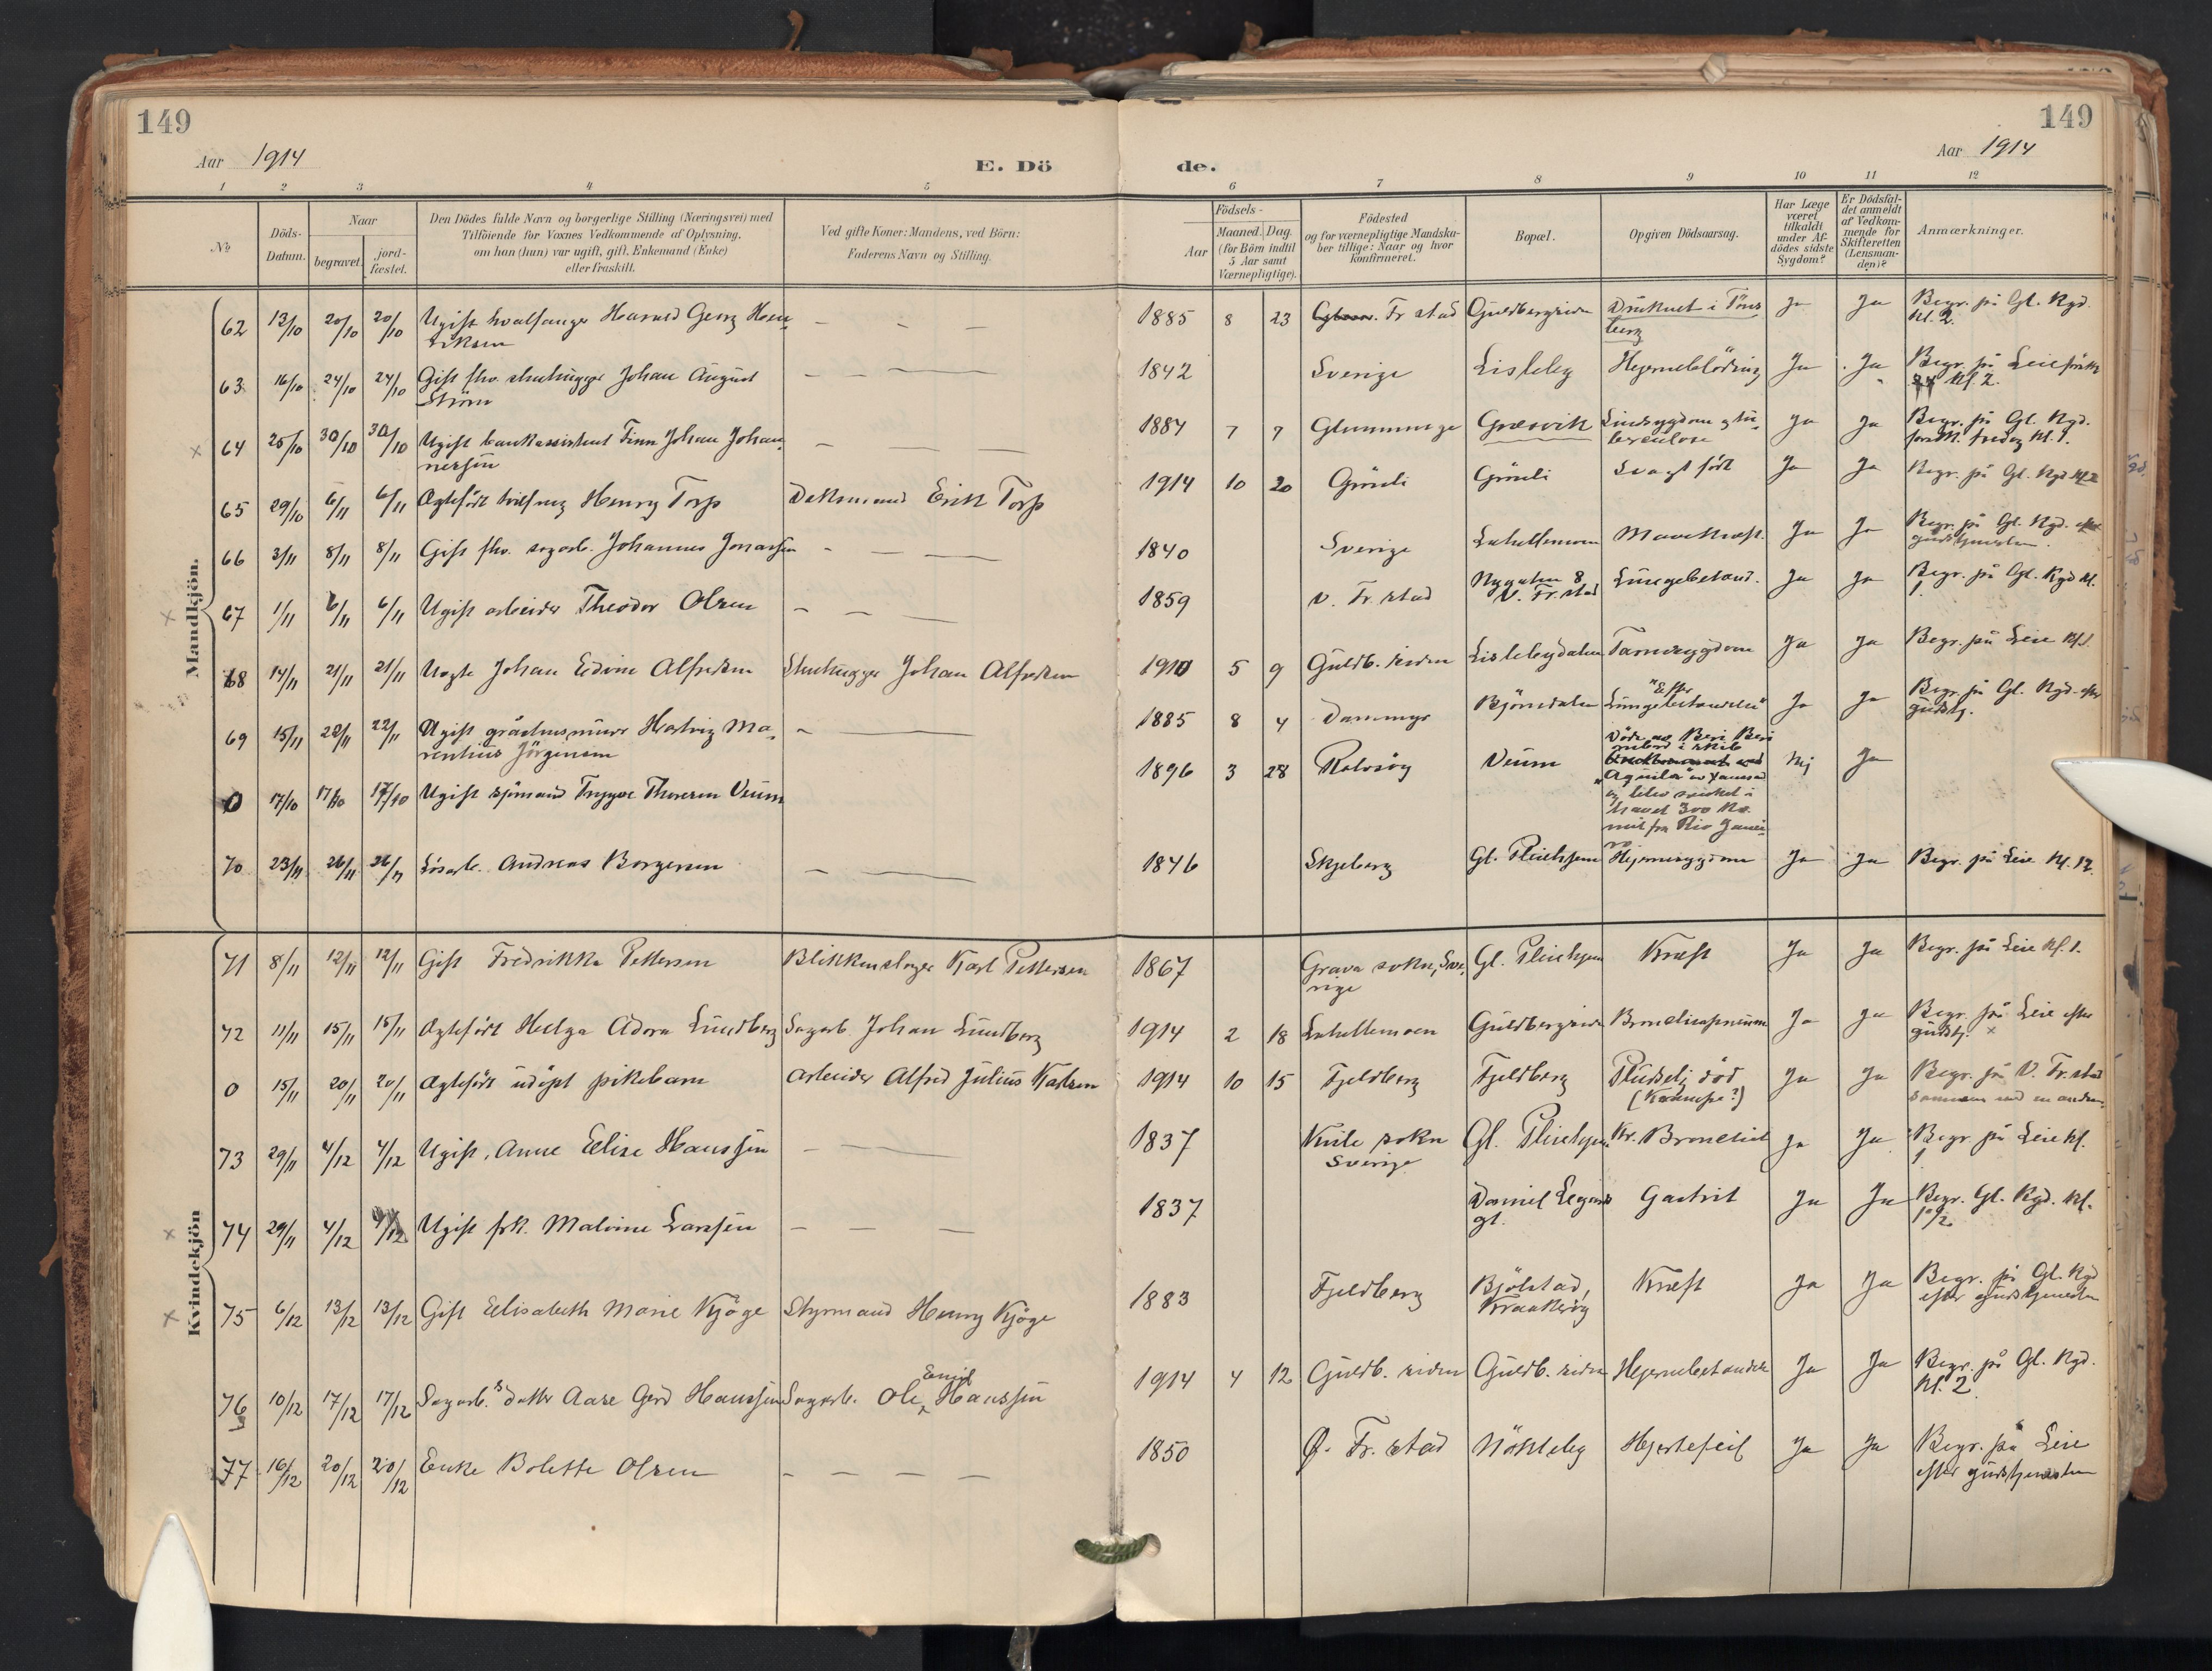 149
149
Aar 1914
E. Dö
de.
Aar 1914
1 2 3 4 5 6 7 8 9 10 11 12
No
Döds-
Datum.
Naar
begravet.
jord-
fæstet.
Den Dödes fulde Navn og borgerlige Stilling (Næringsvei) med
Tilföiende for Voxnes Vedkommende af Oplysning,
om han (hun) var ugift, gift, Enkemand (Enke)
eller fraskilt.
Ved gifte Koner: Mandens, ved Börn:
Faderens Navn og Stilling.
Födsels-
Aar
Maaned. Dag.
(for Börn indtil
5 Aar samt
Værnepligtige).
Födested
og for værnepligtige Mandska-
ber tillige: Naar og hvor
konfirmeret.
Bopæl.
Opgiven Dödsaarsag.
Har Læge
været
tilkaldt
under Af-
dödes sidste
Sygdom?
Er Dödsfal-
det anmeldt
af Vedkom-
mende for
Skifteretten
(Lensman-
den)?
Anmærkninger.
Mandkjön.
62 13/10 20/10 20/10 Ugift hvalfanger Harald Georg Hen-
riksen
— — — 1885 8 23 Fr stad Guldbergsiden Druknet i Töns
berg
Ja Ja Begr. på Gl. Kgd.
kl. 2.
63 16/10 24/10 24/10 Gift fhv. stenhugger Johan August
Ström
— — — 1842 Sverige Lisleby Hjerneblödning Ja Ja Begr. på Leie
kl. 2.
64 25/10 30/10 30/10 Ugift bankassistent Finn Johan Johan-
nessen
— — — 1884 7 7 Glemminge Græsvik Lungesygdom tu-
berculose
Ja Ja Begr. på Gl. Kgd.
fredag kl. 1.
65 29/10 6/11 6/11 Ægtefödt tvilling Henry Torp Dæksmand Erik Torp 1914 10 20 Grönli Grönli Svagt födt Ja Ja Begr. på Gl. Kgd kl 2
66 3/11 8/11 8/11 Gift fhv. sagarb. Johannes Jonassen — — — 1840 Sverige Lahellemoen Mavekræft. Ja Ja Begr. på Gl. Kgd. efter
gudstjenesten.
67 1/11 6/11 6/11 Ugift arbeider Theodor Olsen — — — 1859 V. Fr. stad Nygaten 8
V. Fr. stad
Lungebetænd. Ja Ja Begr. på Gl. Kgd kl.
1.
68 14/11 21/11 21/11 Johan Edvin Alfredsen Stenhugger Johan Alfredsen 1910 5 9 Guldb. siden Lislebydalen Tarmsygdom Ja Ja Begr. på Leie kl 1.
69 15/11 22/11 22/11 Ugift gråstensmurer Hartvig Ma-
rentius Jörgensen
— — 1885 8 4 Dammyr Björnedalen "Efter
Lungebetændelse"
Ja Ja Begr. på Gl. Kgd. efter
gudstj.
0 17/10 17/10 17/10 Ugift sjömand Trygve Thoresen Veum 1896 3 28 Rolvsöy Veum Döde av Beri Beri
ombord i skib
"Aquila"
og blev senket i
havet 300 kv.
mil fra Rio Janei-
ro
Nej Ja
70 23/11 26/11 26/11 Lösarb. Andreas Borgersen — — 1846 Skjeberg Gl. Pleiehjem Hjernesygdom Ja Ja Begr. på Leie kl. 12.
Kvindekjön
71 8/11 12/11 12/11 Gift Fredrikke Pettersen Blikkenslager Karl Pettersen 1867 Grava sokn, Sve-
rige
Gl. Pleiehjem Kræft Ja Ja Begr. på Leie kl. 1.
72 11/11 15/11 15/11 Ægtefödt Helga Adora Lundberg Sagarb. Johan Lundberg 1914 2 18 Lahellemoen Guldbergsiden Bronchopneumoni Ja Ja Begr. på Leie efter
gudstj. ×
0 15/11 20/11 20/11 Ægtefödt udöpt pikebarn Arbeider Alfred Julius Karlsen 1914 10 15 Fjeldberg Fjeldberg Pludselig död
(Krampe?)
Ja Ja Begr. på V. Fr. stad
sammen med en anden
73 29/11 4/12 4/12 Ugift, Anne Elise Hanssen — — 1837 Kville sokn
Sverige
Gl. Pleiehjem Kr. Bronchit Ja Ja Begr på Leie kl.
1
74 29/11 4/12 4/12 Ugift frk. Malvine Larssen — — — 1837 Daniel Leegaards
gt.
Gastrit Ja Ja Begr. Gl. Kgd. kl.
1 1/2
75 6/12 13/12 13/12 Gift Elisabeth Marie Kjöge Styrmand Henry Kjöge 1883 Fjeldberg Bjölstad,
Kraakeröy
Kræft Ja Ja Begr. på Gl. Kgd
efter gudstjenesten
76 10/12 17/12 17/12 Sagarb.s datter Aase Gerd Hanssen Sagarb. Ole Emil Hanssen 1914 4 12 Guldb. siden Guldb. siden Hjernebetændelse Ja Ja Begr. på Gl. Kgd.
kl. 2.
77 16/12 20/12 20/12 Enke Bolette Olsen — — — — 1850 Ø. Fr. stad Nökleby Hjertefeil Ja Ja Begr. på Leie
efter gudstjenesten